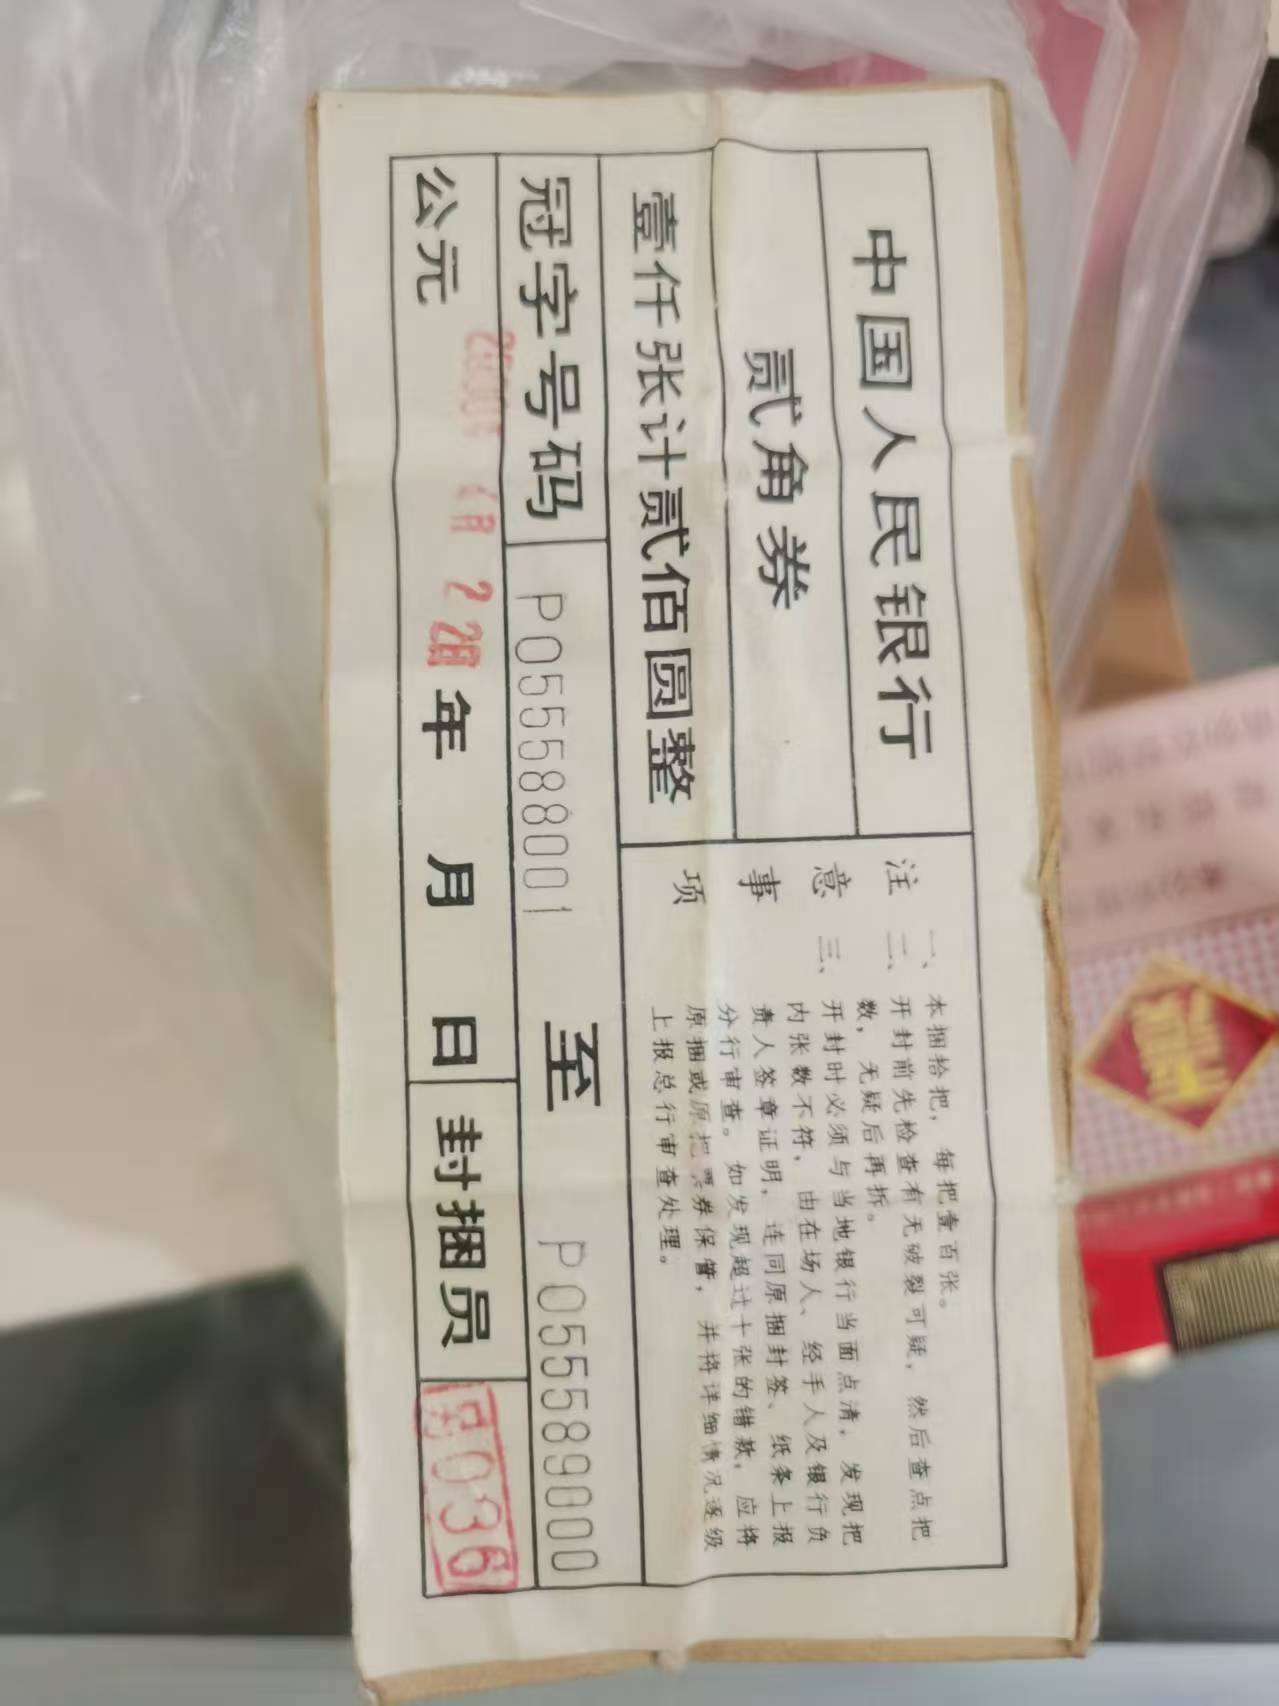 中国人民银行
贰角券
壹仟张计贰佰圆整
注意事项
一、本捆拾把，每把壹百张。
二、开封前先检查有无破裂可疑，然后查点把
数，无疑后再拆。
三、开封时必须与当地银行当面点清，发现把
内张数不符，由在场人、经手人及银行负
责人签章证明，连同原捆封签、纸条上报
分行审查。如发现超过十张的错款，应将
原捆或原把票券保管，并将详细情况逐级
上报总行审查处理。
冠字号码 PO55588001 至 PO55589000
公元 年 月 日 封捆员 036